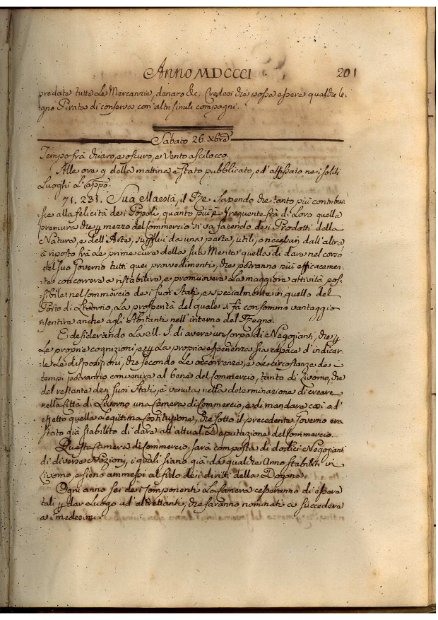 ANNO MDCCCI 201
predata tutte le Marcanzie, danaro &c. Credesi che possa essere qualche le-
gno Pirata di conserva con altri simili compagni.
Sabato 26. Xbre
Tempo frà chiaro, e oscuro, e Vento a scilocco.
Alle ore 9 della mattina è stato pubblicato, ed affisso nei soliti
Luoghi il appo.
71. 231. Sua Maestà, il Re Sapendo che tanto più contribui-
sce alla felicità dei Popoli, quanto più è frequente frà di Loro quella
premura che p mezzo del Commercio si và facendo dei Prodotti della
Natura, e dell'Arte, sussidi da una parte, utili, o necessari dall'altra
à riposto frà le prime cure della sua Mente quella di dare nel corso
del suo Governo tutti quei provvedimenti, che potranno più efficacemen-
te concorrere a ristabilire, e promuovere la maggiore attività pos-
sibile nel commercio dei suoi Stati, e specialmente in quello del
Porto di Livorno, la prosperità del quale si fà con sommo vantaggio
sentire anche agli Abitanti nell'interno del Regno.
E desiderando la M. S. di avere un corpo di Negozianti, che p
le proprie cognizioni, e p la propria esperienza sia capace d'indicar-
le le disposizioni, che secondo le occorrenze, e le circostanze dei
tempi potranno convenire al bene del commercio, tanto di Livorno, che
del restante dei suoi Stati, è venuta nella determinazione di creare
nella Città di Livorno una Camera di Commercio, e di mandare così ad
effetto quella legittima costituzione, che sotto il precedente Governo era
stato già stabilito di dare all'attual Deputazione del Commercio.
Questa Camera di Commercio, sarà composta di dodici Negozianti
di diverse Nazioni, i quali siano già da qualche Anno stabiliti in
Livorno, e siano ammessi al fido dei diritti della Dogana.
Ogni anno sei dei Componenti la Camera cesseranno di esser
tali p dar luogo ad altrettanti, che saranno nominati a succedere
ai medesimi